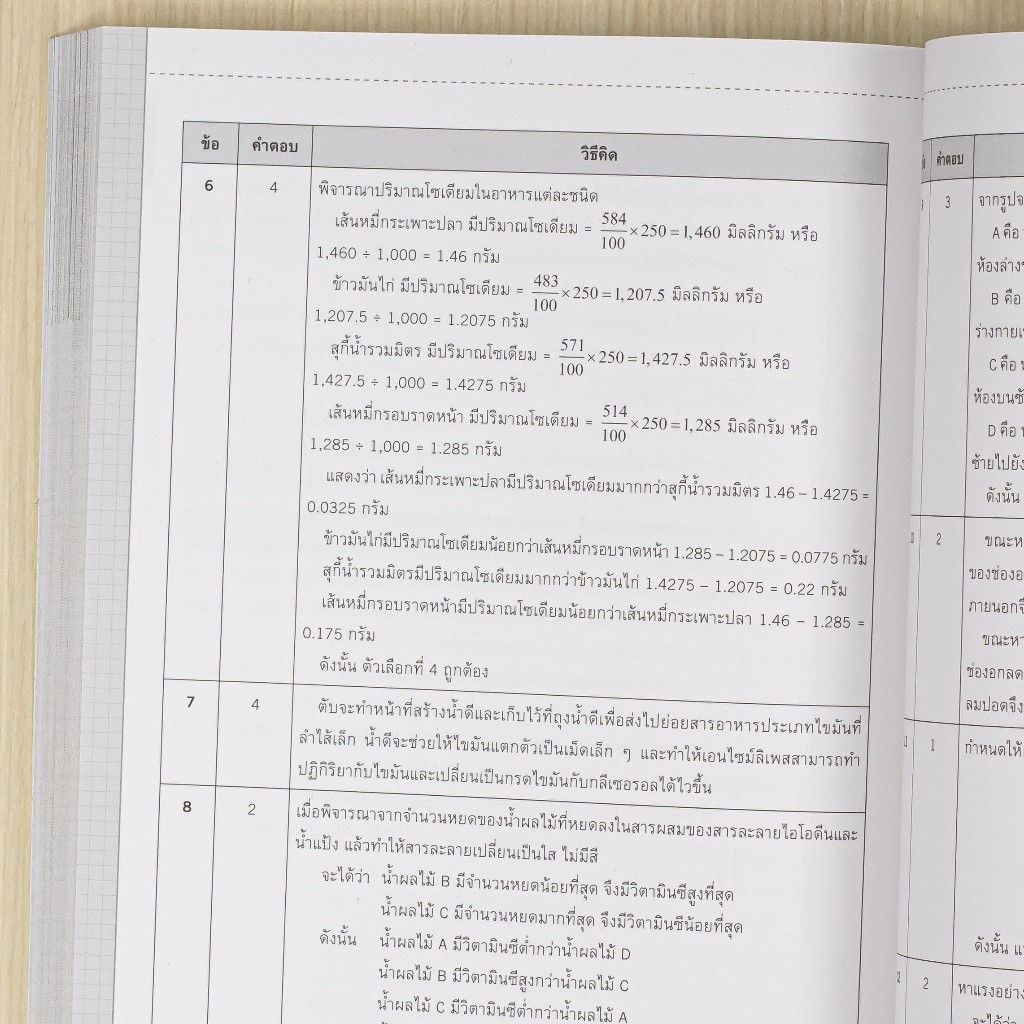 ข้อ คำตอบ วิธีคิด
6 4 พิจารณาปริมาณโซเดียมในอาหารแต่ละชนิด
เส้นหมี่กระเพาะปลา มีปริมาณโซเดียม = 584/100 × 250 = 1,460 มิลลิกรัม หรือ
1,460 ÷ 1,000 = 1.46 กรัม
ข้าวมันไก่ มีปริมาณโซเดียม = 483/100 × 250 = 1,207.5 มิลลิกรัม หรือ
1,207.5 ÷ 1,000 = 1.2075 กรัม
สุกี้น้ำรวมมิตร มีปริมาณโซเดียม = 571/100 × 250 = 1,427.5 มิลลิกรัม หรือ
1,427.5 ÷ 1,000 = 1.4275 กรัม
เส้นหมี่กรอบราดหน้า มีปริมาณโซเดียม = 514/100 × 250 = 1,285 มิลลิกรัม หรือ
1,285 ÷ 1,000 = 1.285 กรัม
แสดงว่า เส้นหมี่กระเพาะปลามีปริมาณโซเดียมมากกว่าสุกี้น้ำรวมมิตร 1.46 – 1.4275 =
0.0325 กรัม
ข้าวมันไก่มีปริมาณโซเดียมน้อยกว่าเส้นหมี่กรอบราดหน้า 1.285 – 1.2075 = 0.0775 กรัม
สุกี้น้ำรวมมิตรมีปริมาณโซเดียมมากกว่าข้าวมันไก่ 1.4275 – 1.2075 = 0.22 กรัม
เส้นหมี่กรอบราดหน้ามีปริมาณโซเดียมน้อยกว่าเส้นหมี่กระเพาะปลา 1.46 – 1.285 =
0.175 กรัม
ดังนั้น ตัวเลือกที่ 4 ถูกต้อง
7 4 ตับจะทำหน้าที่สร้างน้ำดีและเก็บไว้ที่ถุงน้ำดีเพื่อส่งไปย่อยสารอาหารประเภทไขมันที่
ลำไส้เล็ก น้ำดีจะช่วยให้ไขมันแตกตัวเป็นเม็ดเล็ก ๆ และทำให้เอนไซม์ลิเพสสามารถทำ
ปฏิกิริยากับไขมันและเปลี่ยนเป็นกรดไขมันกับกลีเซอรอลได้ไวขึ้น
8 2 เมื่อพิจารณาจากจำนวนหยดของน้ำผลไม้ที่หยดลงในสารผสมของสารละลายไอโอดีนและ
น้ำแป้ง แล้วทำให้สารละลายเปลี่ยนเป็นใส ไม่มีสี
จะได้ว่า น้ำผลไม้ B มีจำนวนหยดน้อยที่สุด จึงมีวิตามินซีสูงที่สุด
น้ำผลไม้ C มีจำนวนหยดมากที่สุด จึงมีวิตามินซีน้อยที่สุด
ดังนั้น น้ำผลไม้ A มีวิตามินซีต่ำกว่าน้ำผลไม้ D
น้ำผลไม้ B มีวิตามินซีสูงกว่าน้ำผลไม้ C
น้ำผลไม้ C มีวิตามินซีต่ำกว่าน้ำผลไม้ A
คำตอบ
3 จากรูป
A คือ
ห้องล่าง
B คือ
ร่างกาย
C คือ
ห้องบน
D คือ
ซ้ายไปยัง
ดังนั้น
2 ขณะ
ของช่อง
ภายนอก
ขณะ
ช่องอกลด
ลมปอดจึง
1 กำหนดให้
ดังนั้น
2 หาแรงอย่าง
จะได้ว่า